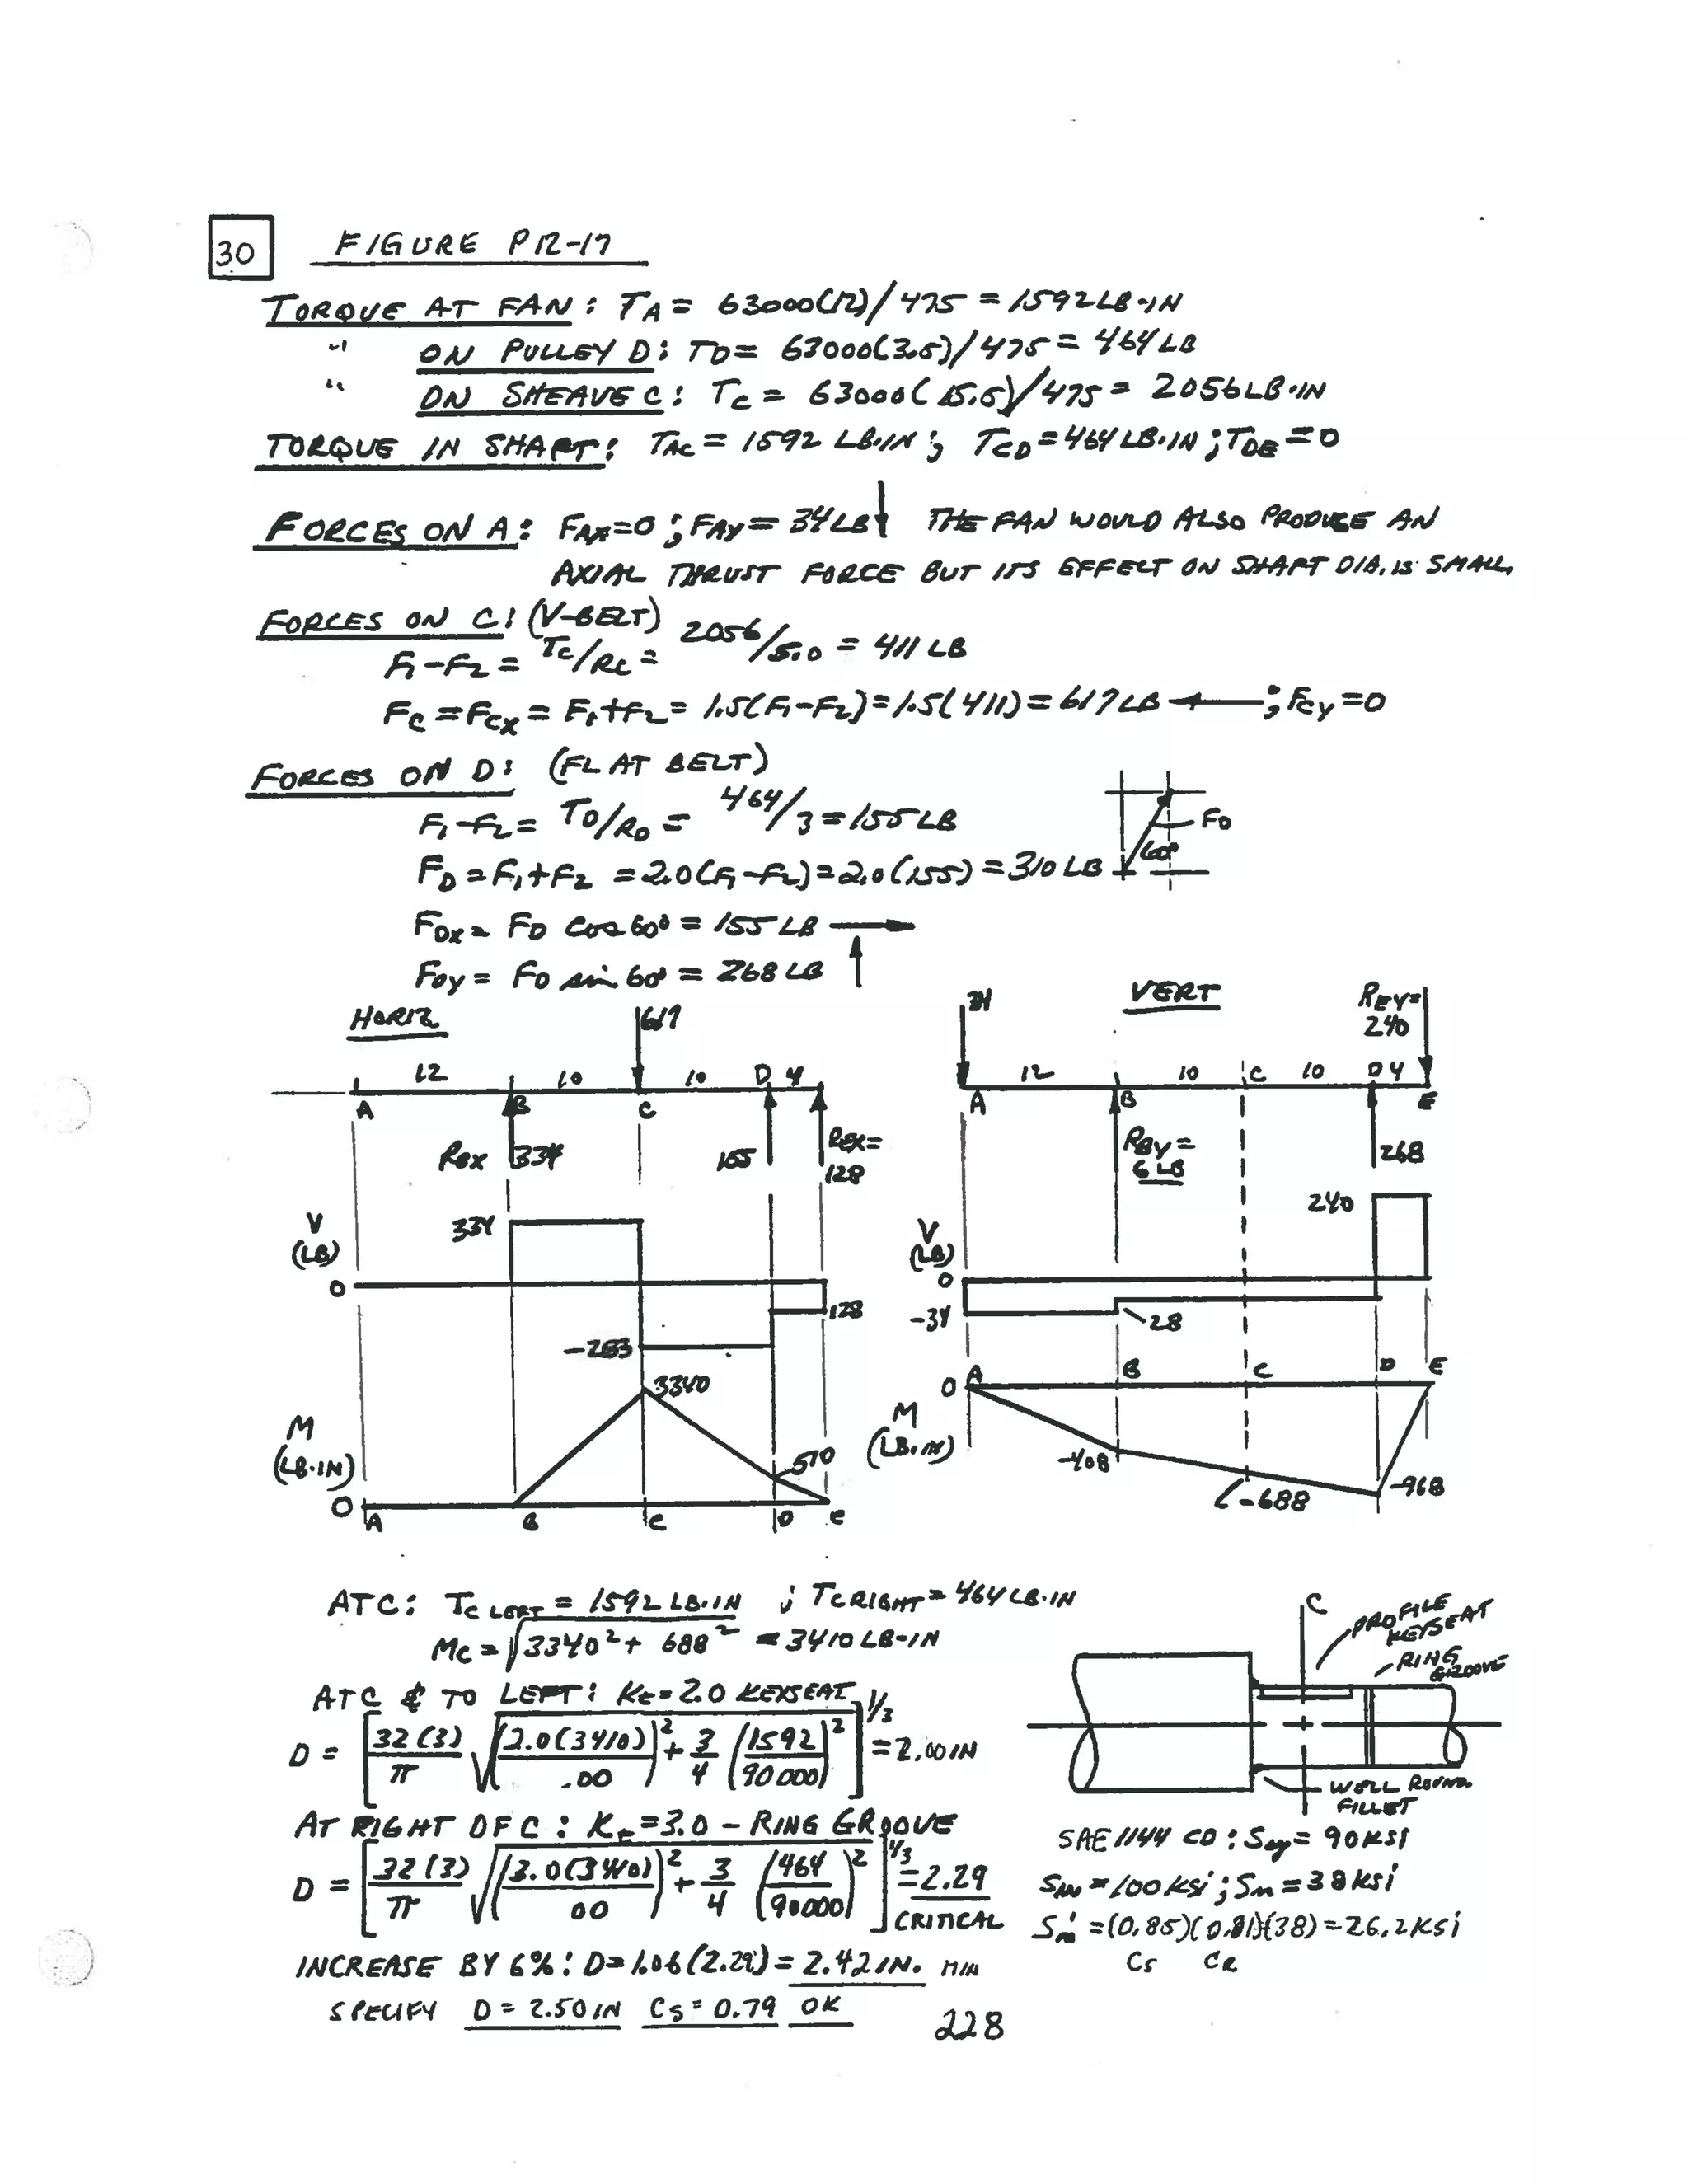 30 FIGURE P12-17
TORQUE AT FAN: TA = 63000(12)/475 = 1592 LB·IN
" ON PULLEY D: TD = 63000(3.5)/475 = 464 LB
" ON SHEAVE C: TC = 63000(15.5)/475 = 2056 LB·IN
TORQUE IN SHAFT: TAC = 1592 LB·IN; TCD = 464 LB·IN; TDE = 0
FORCES ON A: FAX = 0; FAY = 34 LB↓ THE FAN WOULD ALSO PRODUCE AN
AXIAL THRUST FORCE BUT ITS EFFECT ON SHAFT DIA. IS SMALL.
FORCES ON C: (V-BELT)
F1-F2 = TC/RC = 2056/5.0 = 411 LB
FC = FCX = F1+F2 = 1.5(F1-F2) = 1.5(411) = 617 LB ←; FCY = 0
FORCES ON D: (FLAT BELT)
F1-F2 = TD/RD = 464/3 = 155 LB
FD = F1+F2 = 2.0(F1-F2) = 2.0(155) = 310 LB
FD
60°
FDX = FD cos 60° = 155 LB →
FDY = FD sin 60° = 268 LB ↑
HORIZ
617
12 10 10 D 4
A B C
RBX 334 155 REX = 128
V (LB)
334
0
-283
128
M (LB·IN)
3340
570
0
A B C D E
VERT
34
REY = 240
12 10 C 10 D 4
A B E
RBY = 6 LB
268
V (LB)
240
0
-34
28
M (LB·IN)
0 A B C D E
-408
-688
-968
AT C: TC LEFT = 1592 LB·IN ; TC RIGHT = 464 LB·IN
MC = √3340² + 688² = 3410 LB-IN
AT C & TO LEFT: Kt = 2.0 KEYSEAT
D = [32(3)/π √(2.0(3410)/.00)² + 3/4 (1592/90000)²]^1/3 = 2.00 IN
AT RIGHT OF C: Kt = 3.0 - RING GROOVE
D = [32(3)/π √(3.0(3410)/00)² + 3/4 (464/90000)²]^1/3 = 2.29
CRITICAL
INCREASE BY 6%: D = 1.06(2.29) = 2.42 IN. MIN
SPECIFY D = 2.50 IN CS = 0.79 OK
C
PROFILE
KEYSEAT
RING
GROOVE
WELL ROUND
FILLET
SAE 1144 CD: Sy = 90 KSI
Su = 100 KSI; Sn = 38 KSI
Sn' = (0.85)(0.81)(38) = 26.2 KSI
CS CR
228